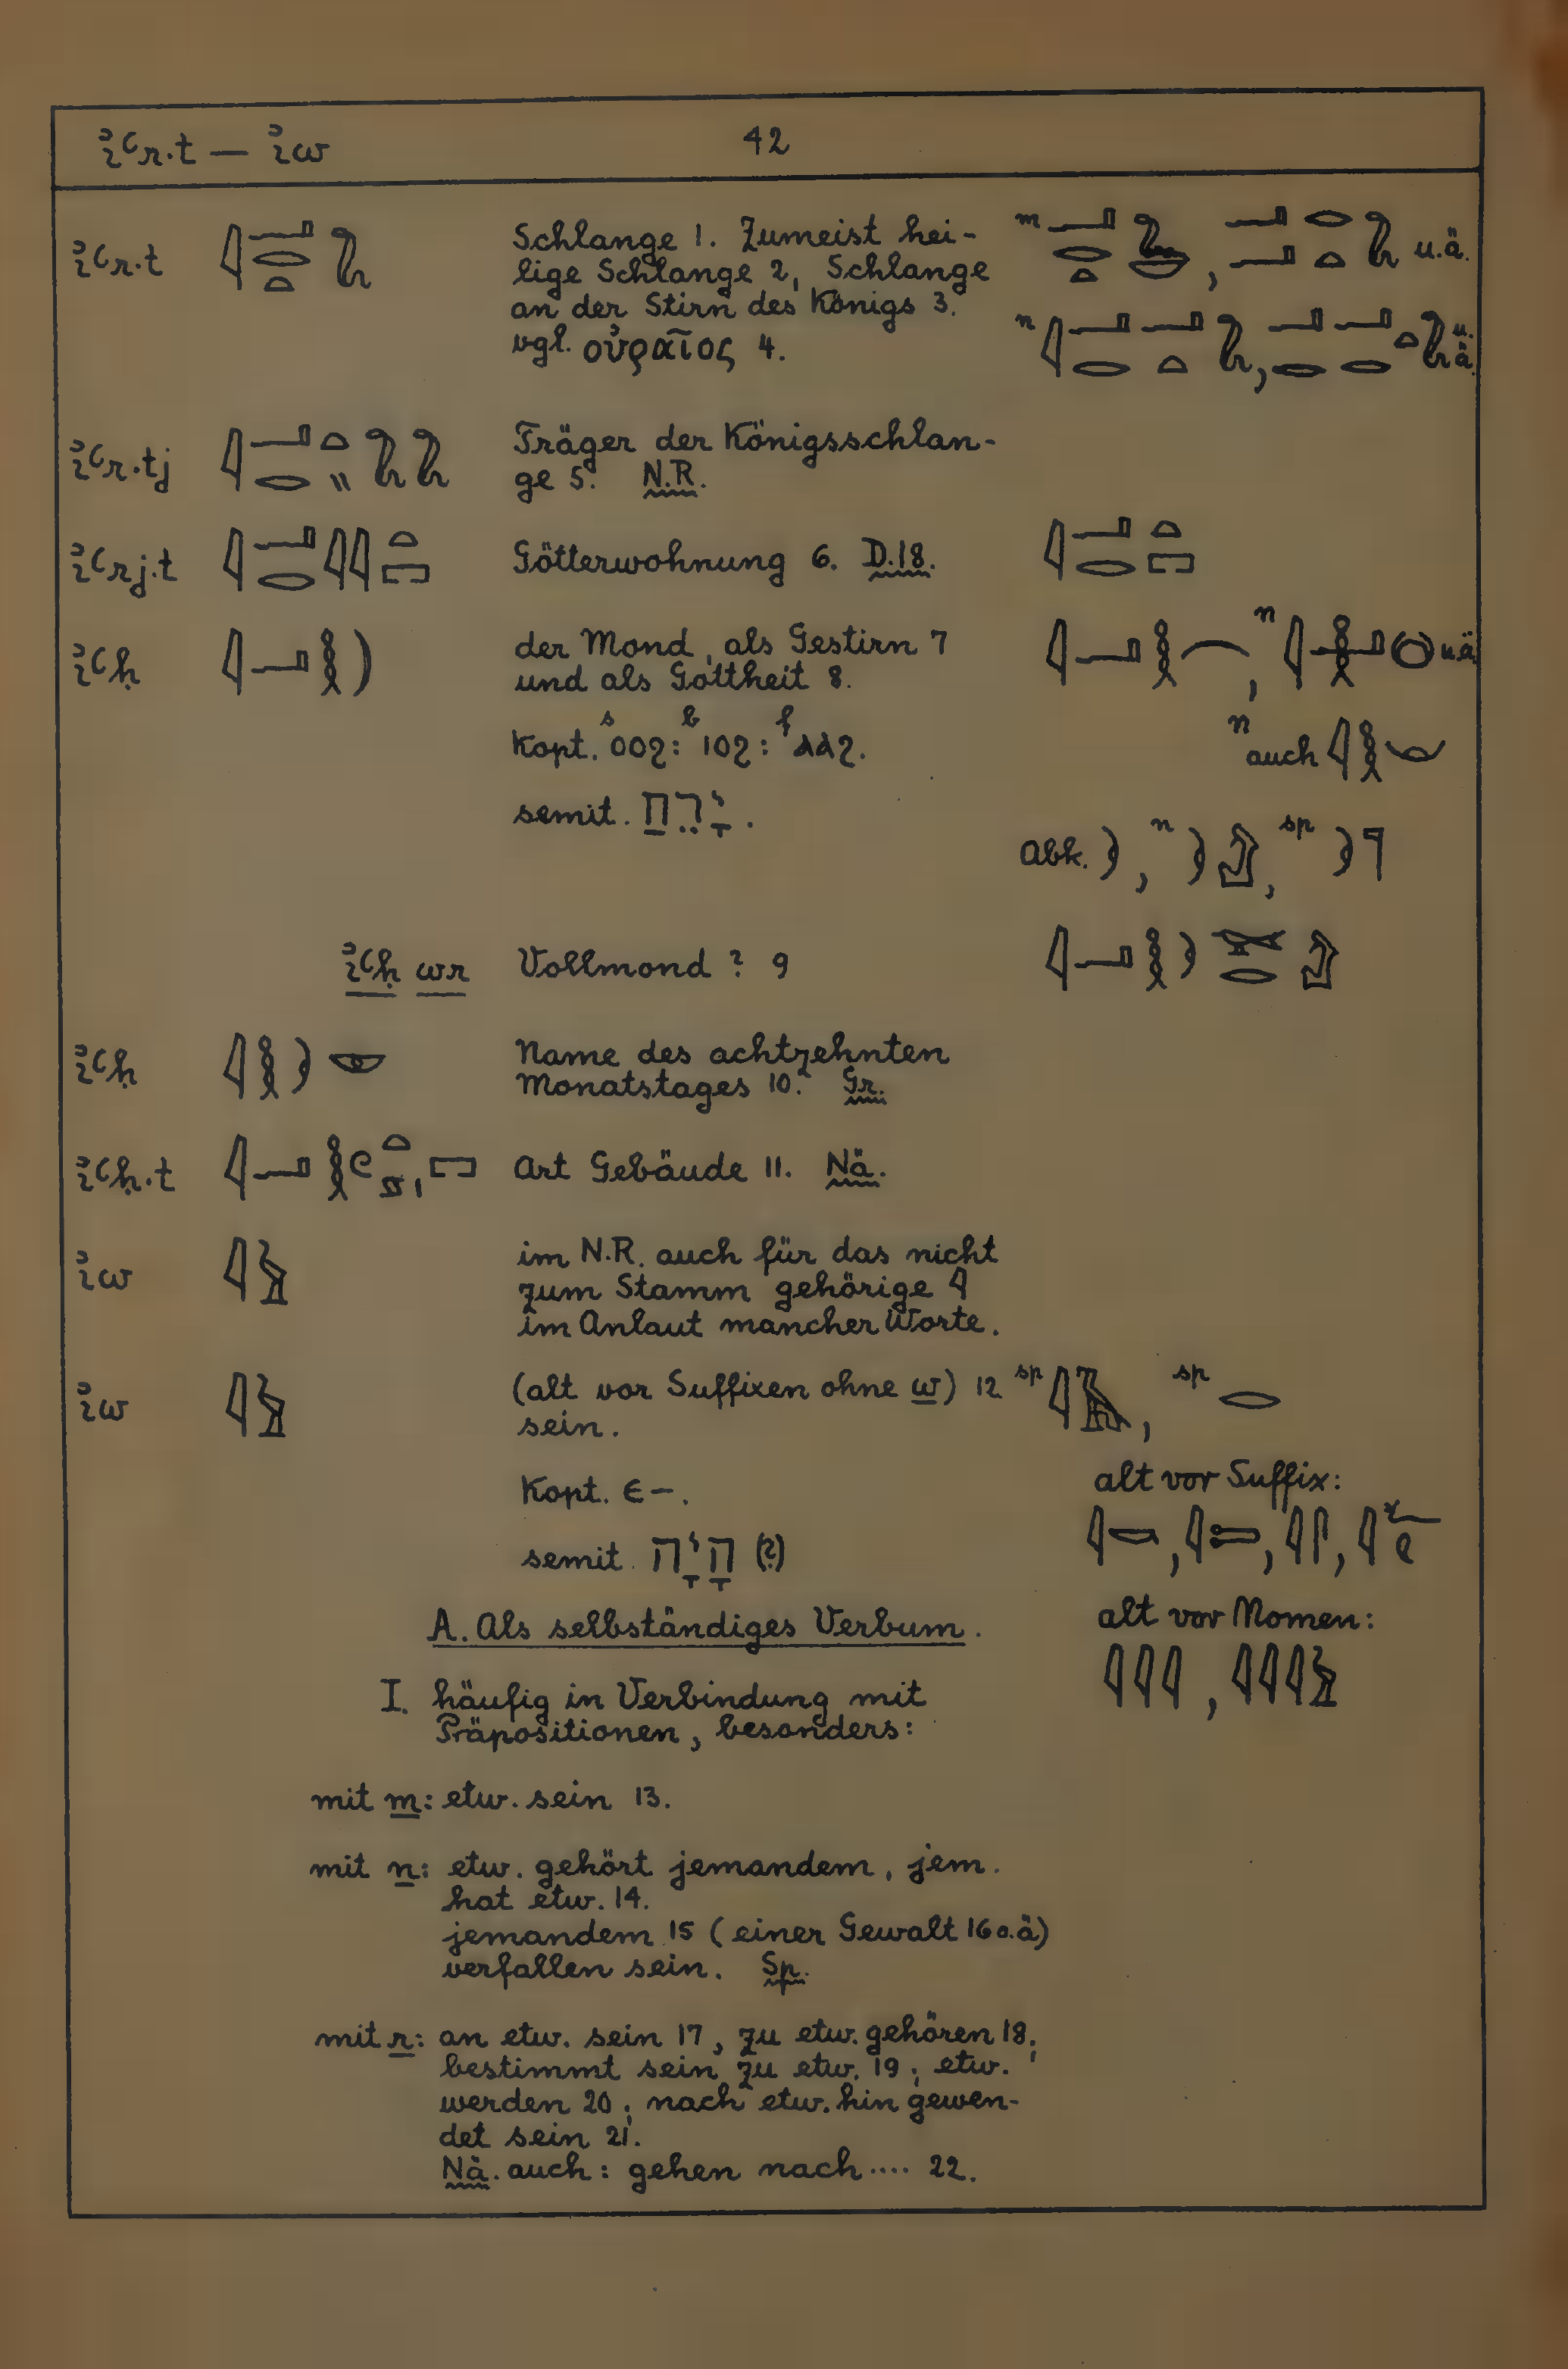 ꞽꜥr·t — ꞽw 42
ꞽꜥr·t Schlange 1. Zumeist hei-
lige Schlange 2, Schlange
an der Stirn des Königs 3.
vgl. οὐραῖος 4.
m , u.ä.
n , u.ä.
ꞽꜥr·tj Träger der Königsschlan-
ge 5. N.R.
ꞽꜥrj·t Götterwohnung 6. D.18.
ꞽꜥḥ der Mond, als Gestirn 7
und als Gottheit 8.
n , u.ä
Kopt. s ⲟⲟϩ: b ⲓⲟϩ: f ⲁⲁϩ.
n auch
semit. יָרֵחַ.
Abk. , n , sp
ꞽꜥḥ wr Vollmond ? 9
ꞽꜥḥ Name des achtzehnten
Monatstages 10. Gr.
ꞽꜥḥ·t Art Gebäude 11. Nä.
ꞽw im N.R. auch für das nicht
zum Stamm gehörige 𓇋
im Anlaut mancher Worte.
ꞽw (alt vor Suffixen ohne w) 12
sein.
sp , sp
Kopt. ⲉ–.
semit. הָיָה (?)
alt vor Suffix:
alt vor Nomen:
A. Als selbständiges Verbum.
I. häufig in Verbindung mit
Präpositionen, besonders:
mit m: etw. sein 13.
mit n: etw. gehört jemandem, jem.
hat etw. 14.
jemandem 15 (einer Gewalt 16 o.ä)
verfallen sein. Sp.
mit r: an etw. sein 17, zu etw. gehören 18;
bestimmt sein zu etw. 19; etw.
werden 20; nach etw. hin gewen-
det sein 21.
Nä. auch: gehen nach .... 22.